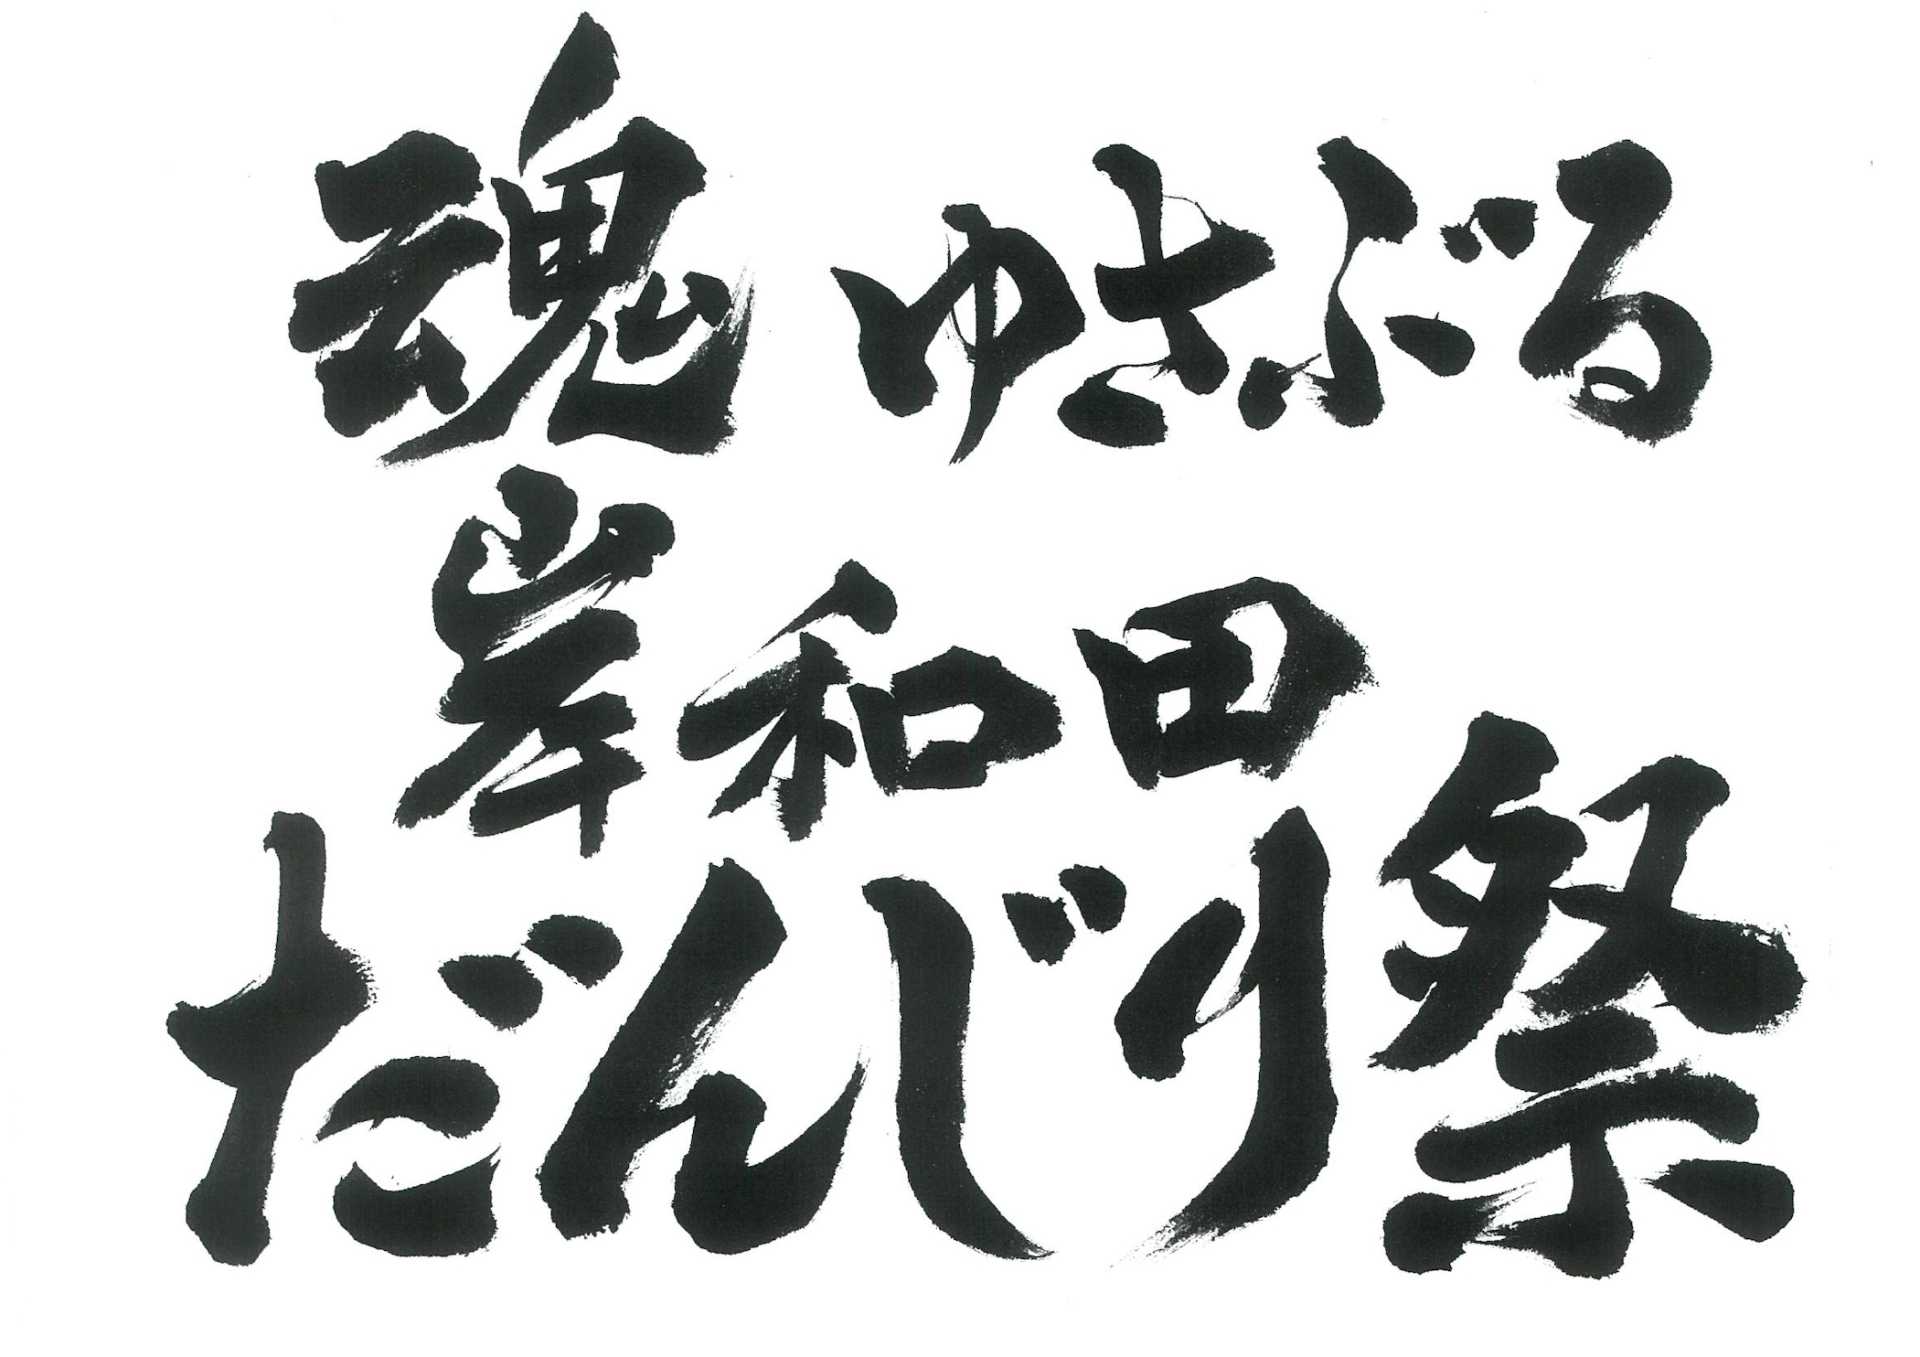 魂ゆさぶる
岸和田
だんじり祭